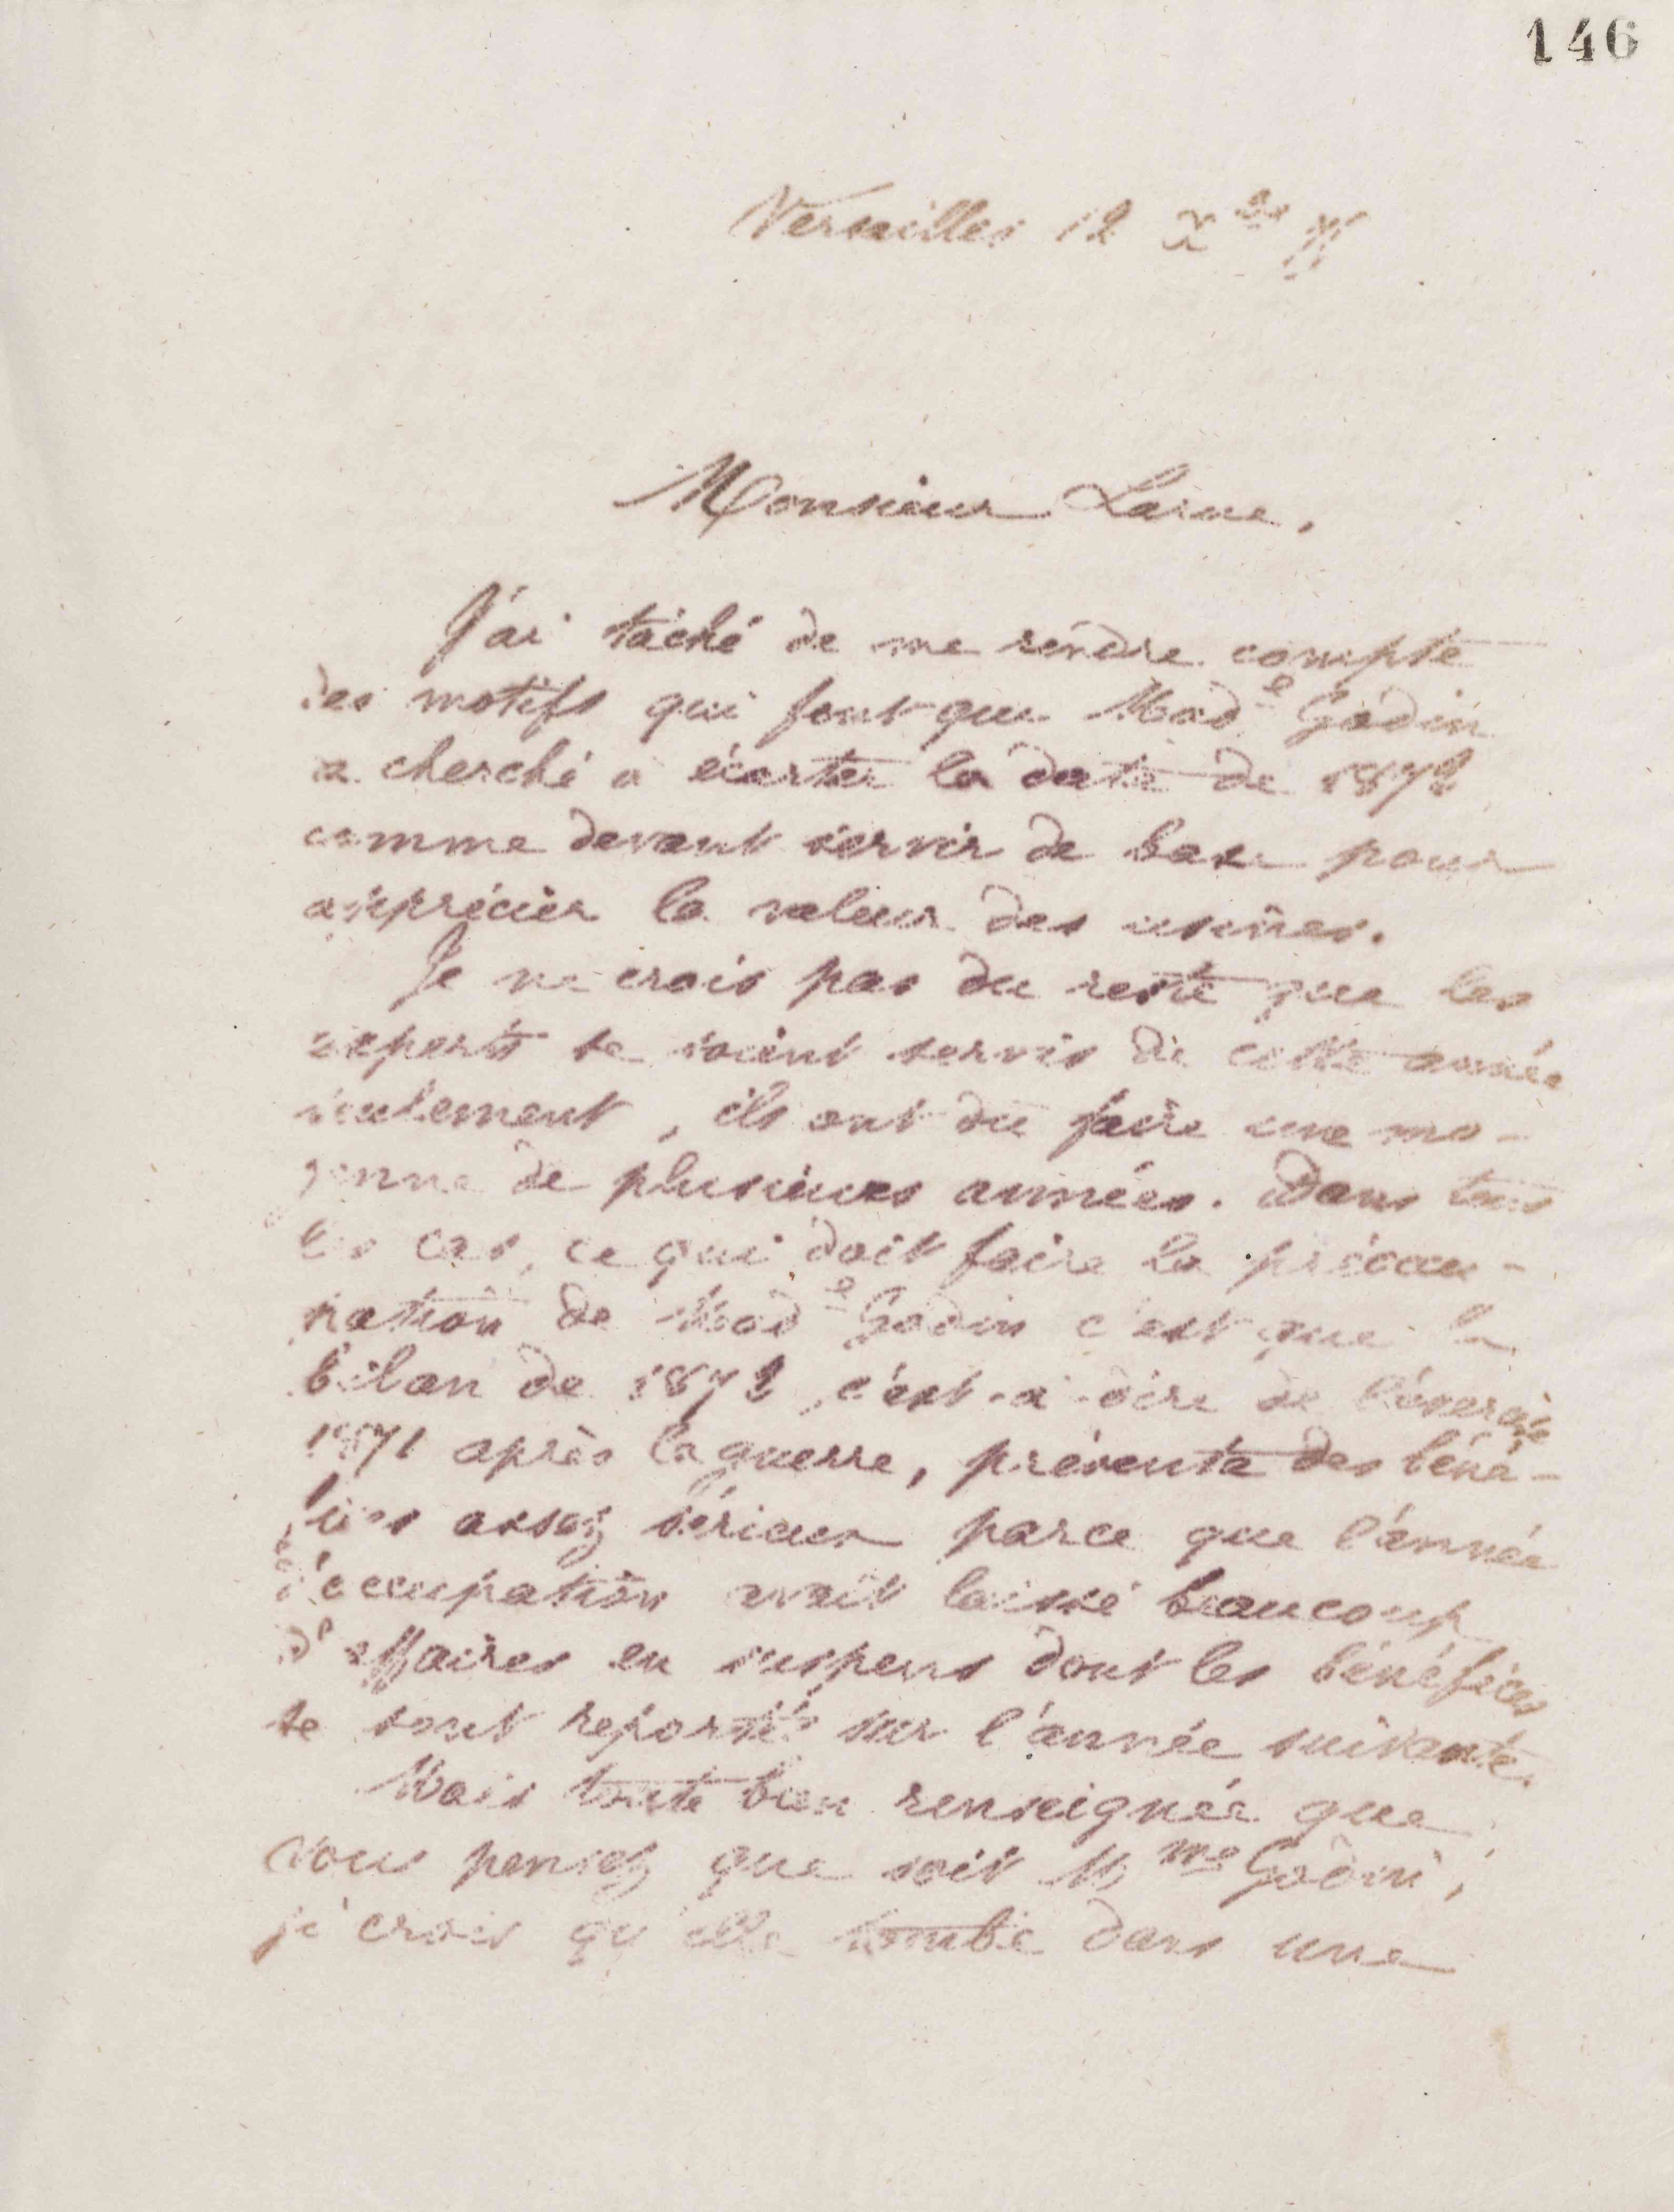 146
Versailles 12 Xbre
Monsieur Larue,
J'ai tâché de me rendre compte
des motifs qui font que Made Godin
a cherché à écarter la date de 1872
comme devant servir de base pour
apprécier la valeur des usines.
Je ne crois pas du reste que les
experts se soient servis de cette année
seulement, ils ont du faire une mo-
yenne de plusieurs années. Dans tous
les cas, ce qui doit faire la préoccu-
pation de Made Godin c'est que le
bilan de 1872 c'est-à-dire de l'exercice
1871 après la guerre, présente des béné-
fices assez sérieux parce que l'année
d'occupation avait laissé beaucoup
d'affaires en suspens dont les bénéfices
se sont reportés sur l'année suivante.
Mais toute bien renseignée que
vous pensez que soit Mme Godin,
je crois qu'elle tombe dans une